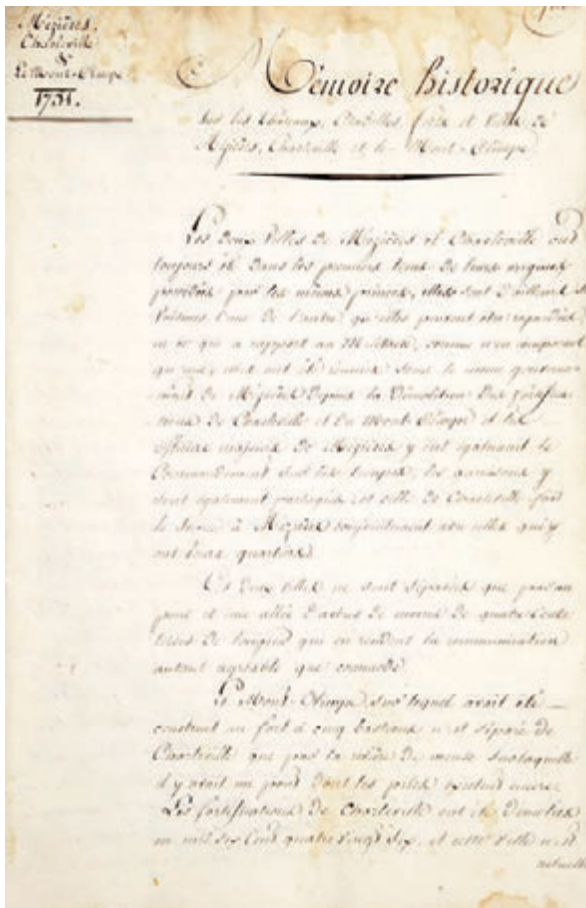 Mézières,
Charleville
&
Le Mont-Olimpe
1731.
Mémoire historique
Sur les Châteaux, Citadelles, forts et Villes de
Mézières, Charleville et le Mont-Olimpe
Les deux Villes de Mézières et Charleville ont
toujours été dans les premiers tems de leurs origines
possédées par les mêmes princes, elles sont d'ailleurs si
voisines l'une de l'autre qu'elles peuvent être regardées
en ce qui a rapport au Militaire, comme n'en composant
qu'une, et ont été réunies sous le même gouverne-
ment de Mézières depuis la Démolition des fortifica-
tions de Charleville et du Mont-Olimpe et les
officiers majors de Mézières y ont également le
Commandement sur les troupes, les garnisons y
sont également partagées, et celle de Charleville fait
le service à Mézières conjointement avec celles qui y
ont leurs quartiers.
Ces deux villes ne sont séparées que par un
pont et une allée d'arbres de moins de quatre cents
toises de longueur qui en rendent la communication
autant agréable que commode.
Le Mont-Olimpe sur lequel avait été
construit un fort à cinq bastions n'est séparé de
Charleville que par la rivière de meuse sur laquelle
il y avait un pont dont les piles existent encore.
Les fortifications de Charleville ont été démolies
en mil six cent quatre vingt six, et cette ville n'est